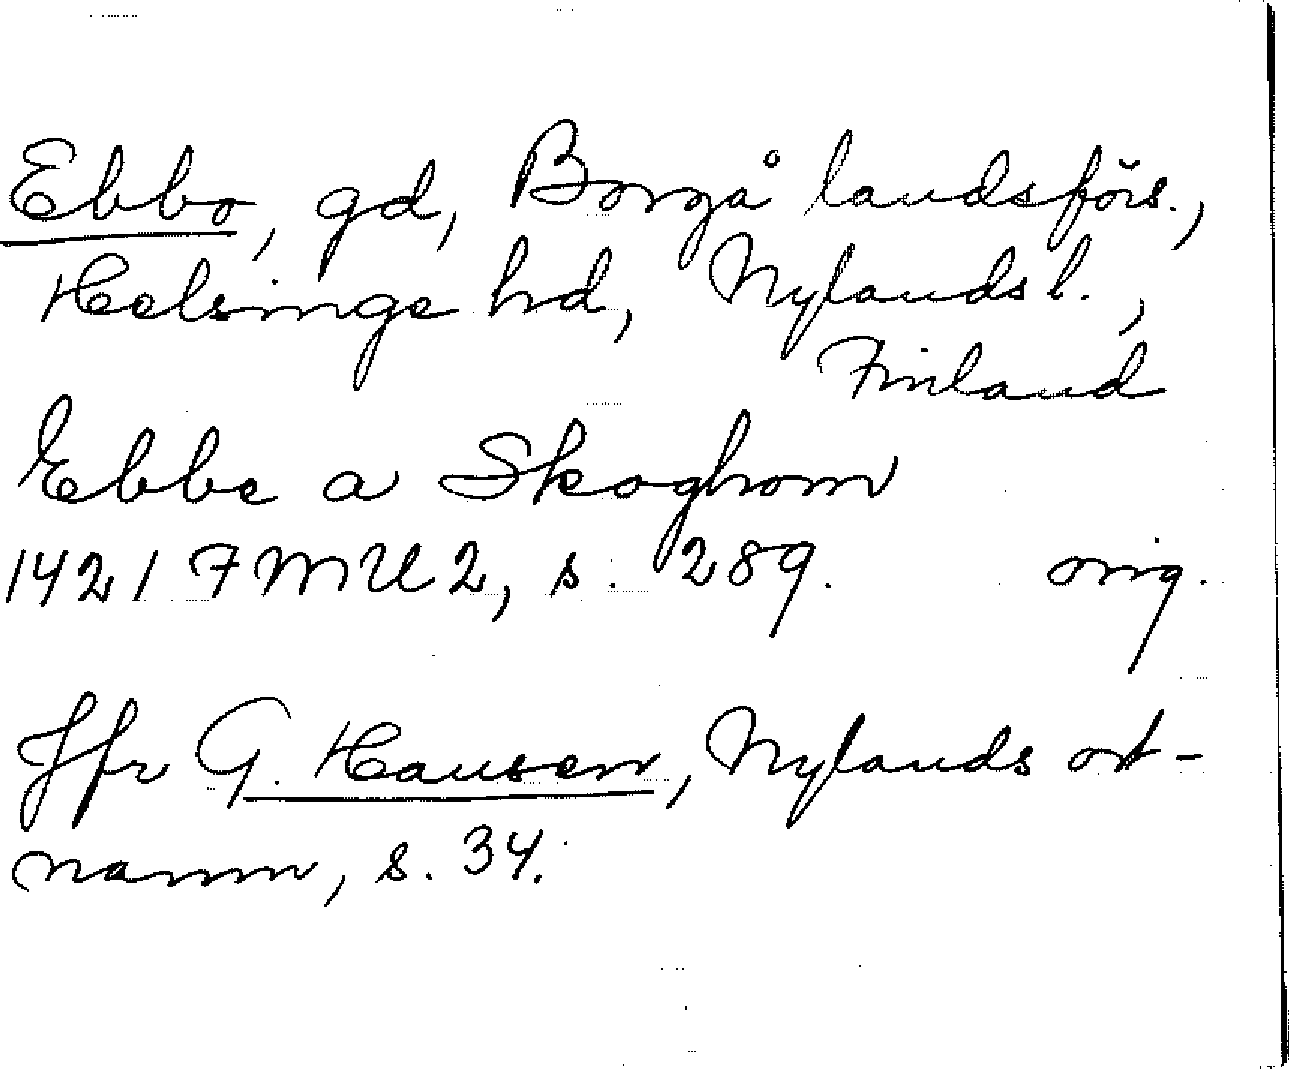 Ebbo, gd, Borgå landsförs.,
Helsinge hd, Nylands l.,
Finland
Ebbe a Skoghom
1421 FMU 2, s. 289. orig.
Jfr G. Hausen, Nylands ort-
namn, s. 34.